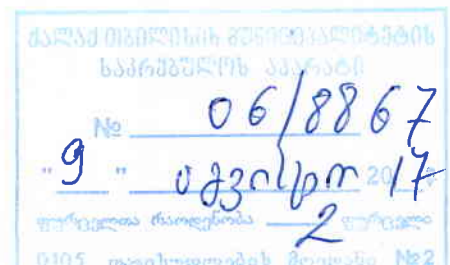 ქალაქ თბილისის მუნიციპალიტეტის
საკრებულოს აპარატი
№ 06/8867
" 9 " აგვისტო 2017 წ
ფურცელთა რაოდენობა 2 ფურცელი
0105 თავისუფლების მოედანი №2